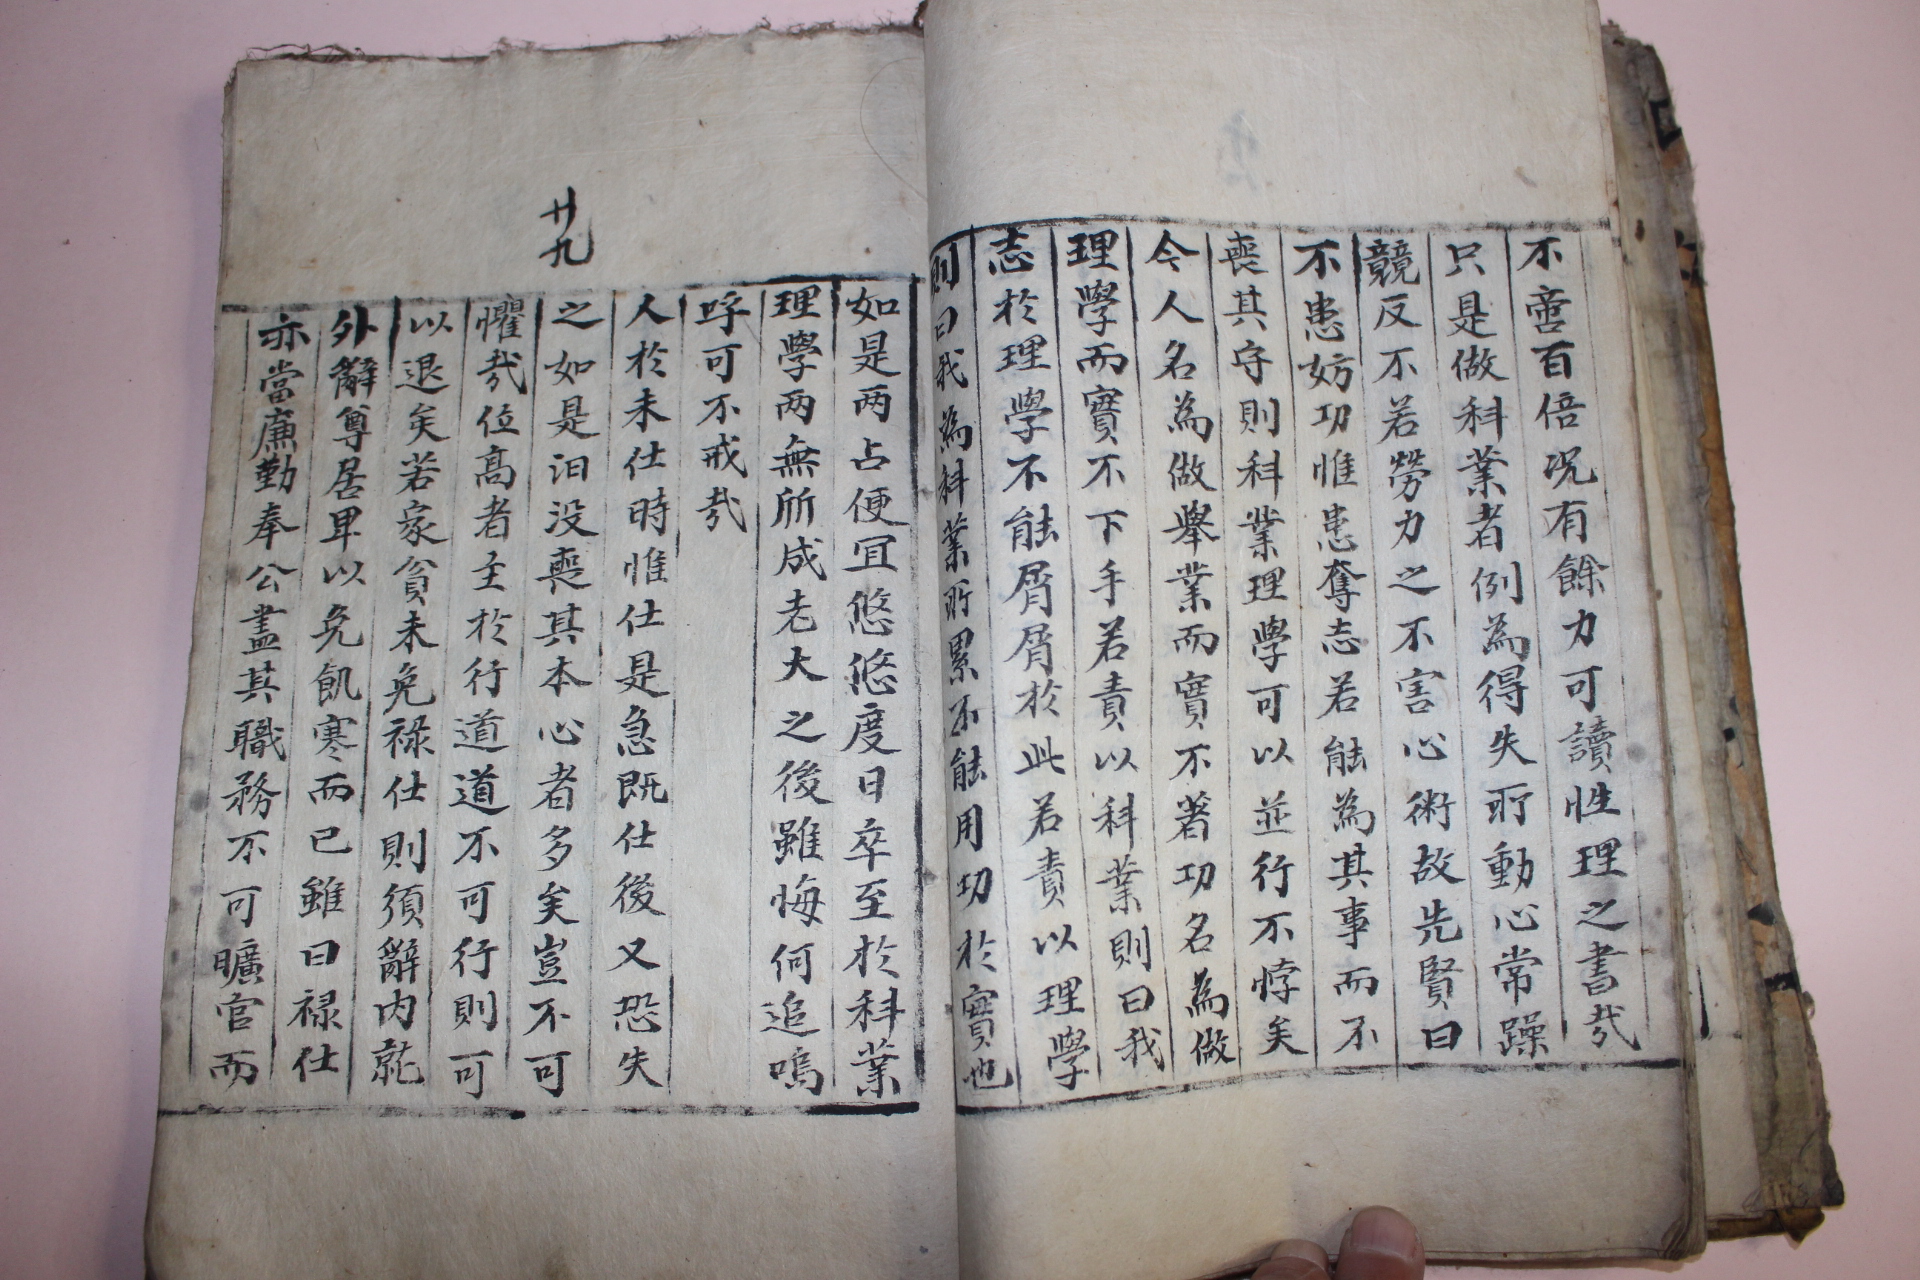 不啻百倍况有餘力可讀性理之書㢤
只是做科業者例為得失所動心常躁
競反不若勞力之不害心術故先賢曰
不患妨功惟患奪志若能為其事而不
喪其守則科業理學可以並行不悖矣
今人名為做舉業而實不著功名為做
理學而實不下手若責以科業則曰我
志於理學不能屑屑於此若責以理學
則曰我為科業所累不能用功於實也
如是两占便冝悠悠度日卒至於科業
理學两無所成老大之後雖悔何追嗚
呼可不戒㢤
人於未仕時惟仕是急既仕後又恐失
之如是汨没喪其本心者多矣豈不可
懼㢤位高者主於行道道不可行則可
以退矣若家貧未免禄仕則須辭内就
外辭尊居卑以免飢寒而已雖曰禄仕
亦當廉勤奉公盡其職務不可曠官而
廿九